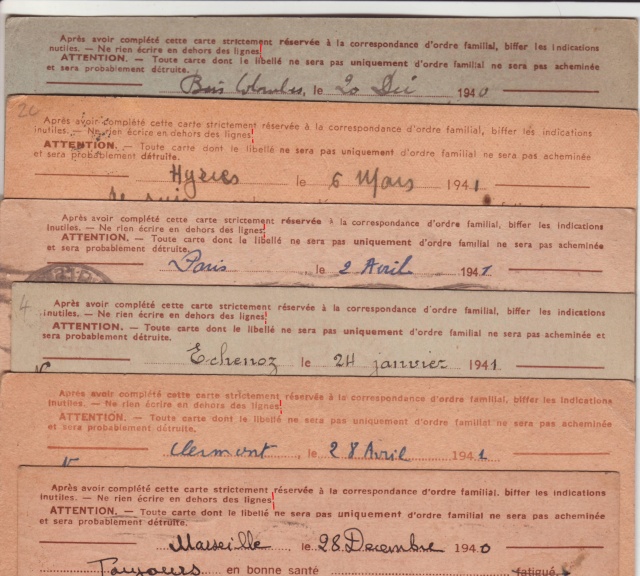 Après avoir complété cette carte strictement réservée à la correspondance d'ordre familial, biffer les indications
inutiles. — Ne rien écrire en dehors des lignes.
ATTENTION. — Toute carte dont le libellé ne sera pas uniquement d'ordre familial ne sera pas acheminée
et sera probablement détruite.
Bois Colombes, le 20 Déc 1940
Après avoir complété cette carte strictement réservée à la correspondance d'ordre familial, biffer les indications
inutiles. — Ne rien écrire en dehors des lignes
ATTENTION. — Toute carte dont le libellé ne sera pas uniquement d'ordre familial ne sera pas acheminée
et sera probablement détruite.
Hyères le 6 Mars 1941
Après avoir complété cette carte strictement réservée à la correspondance d'ordre familial, biffer les indications
inutiles. — Ne rien écrire en dehors des lignes
ATTENTION. — Toute carte dont le libellé ne sera pas uniquement d'ordre familial ne sera pas acheminée
et sera probablement détruite.
Paris, le 2 Avril 1941
4
Après avoir complété cette carte strictement réservée à la correspondance d'ordre familial, biffer les indications
inutiles. — Ne rien écrire en dehors des lignes
ATTENTION. — Toute carte dont le libellé ne sera pas uniquement d'ordre familial ne sera pas acheminée et
sera probablement détruite.
Echenoz le 24 janvier 1941
Après avoir complété cette carte strictement réservée à la correspondance d'ordre familial, biffer les indications
inutiles. — Ne rien écrire en dehors des lignes
ATTENTION. — Toute carte dont le libellé ne sera pas uniquement d'ordre familial ne sera pas acheminée
et sera probablement détruite.
Clermont, le 28 Avril 1941
Après avoir complété cette carte strictement réservée à la correspondance d'ordre familial, biffer les indications
inutiles. — Ne rien écrire en dehors des lignes
ATTENTION. — Toute carte dont le libellé ne sera pas uniquement d'ordre familial ne sera pas acheminée
et sera probablement détruite.
Marseille, le 28 Decembre 1940
Toujours en bonne santé fatigué